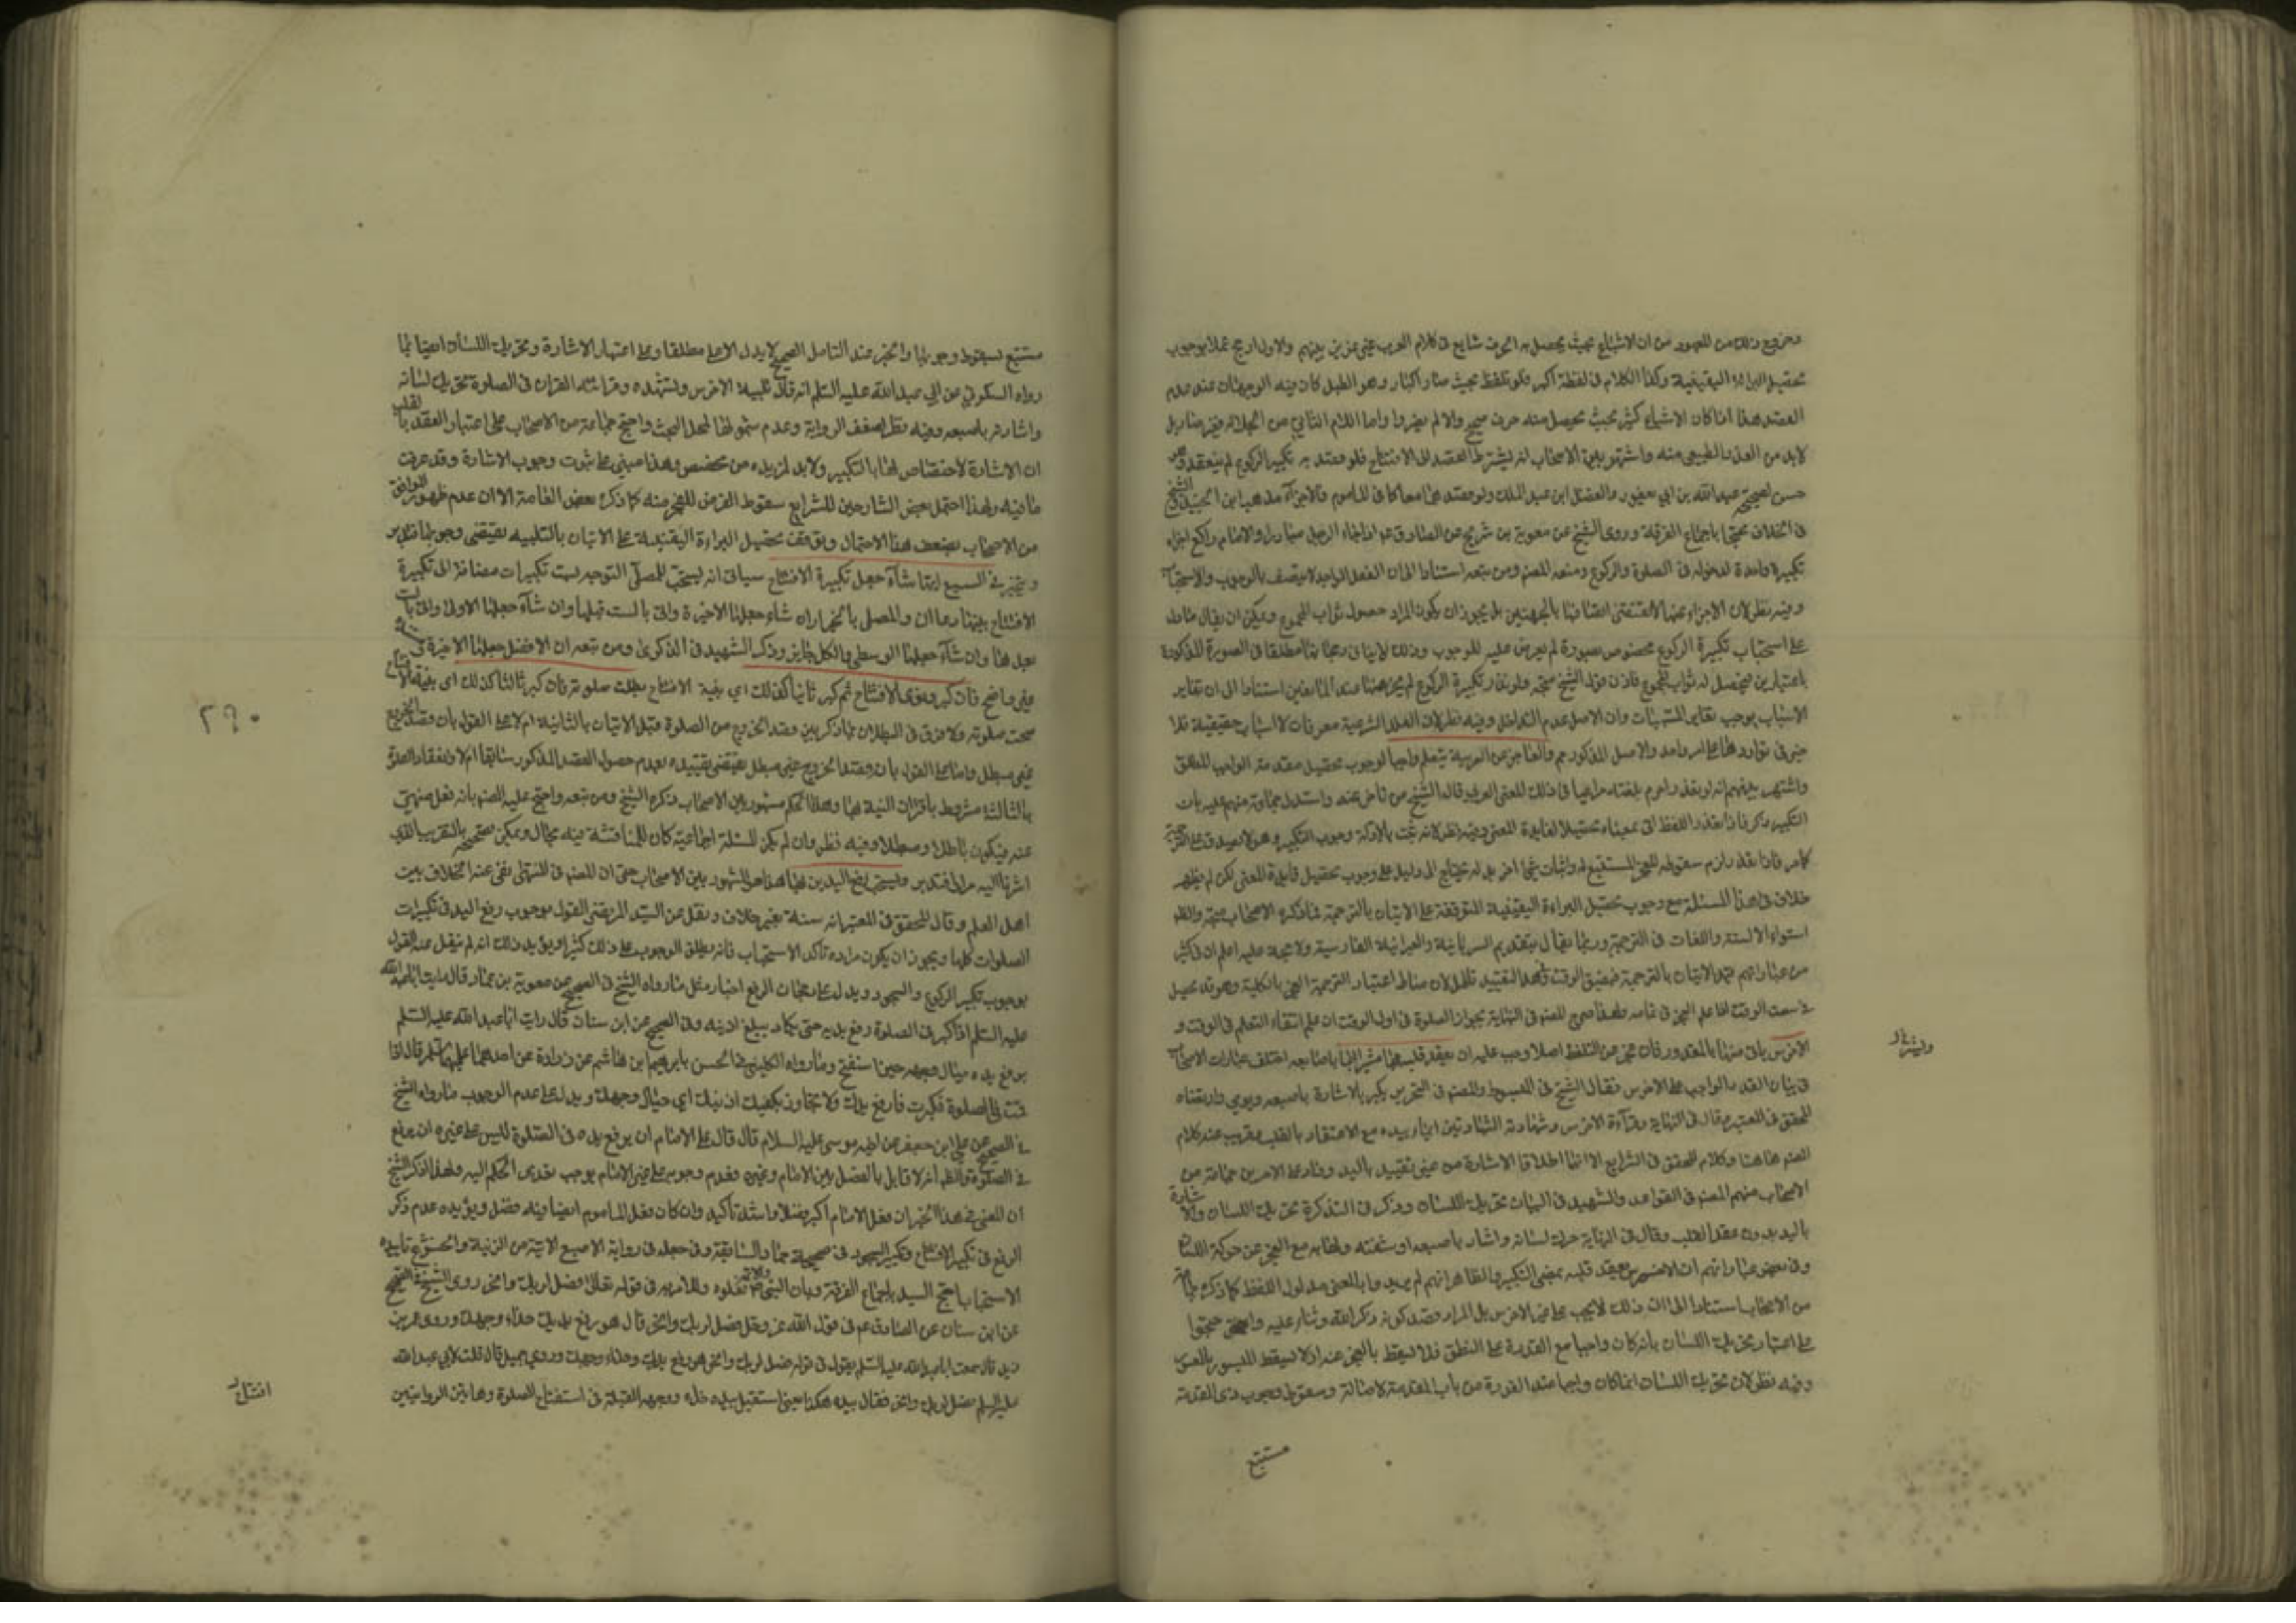 وخروج ذلك من المعهود من ان الاشباع بحيث يحصل به الحرف شايع في كلام العرب غير عزيز بينهم والاول ارجح عملا بوجوب
تحصيل البراءة اليقينية وكذا الكلام في لفظة اكبر فلو تلفظ بحيث صار اكبار وهو الطبل كان فيه الوجهان عند عدم
القصد هذا اذا كان الاشباع كثير بحيث يحصل منه حرف صحيح والا لم يضر واما اللام الثاني من الجلالة
لابد من المد الطبيعي منه واشتهر بين الاصحاب انه يشترط القصد الى الافتتاح فلو قصد به تكبير الركوع لم ينعقد
عبد الله بن ابي يعفور والفضل ابن عبد الملك ولو قصدهما معا كما في المأموم فالاجزاء مذهب ابن الجنيد والشيخ
في الخلاف محتجا باجماع الفرقة وروى الشيخ عن معوية بن شريح عن الصادق ع اذا جاء الرجل مبادرا والامام راكع اجزاه
تكبيرة واحدة لدخوله في الصلوة والركوع ومنعه المصنف ومن تبعه استنادا الى ان الفعل الواحد لا يتصف بالوجوب والاستحباب
وفيه نظر لان الاجزاء عنهما لا يقتضي اتصافها بالجهتين بل يجوز ان يكون المراد حصول ثواب المجموع ويمكن ان يقال ما دل
على استحباب تكبيرة الركوع مخصوص بصورة لم يعرض عليه الوجوب وذلك لا ينافي رجحانها مطلقا في الصورة المذكورة
باعتبارين فيحصل له ثواب المجموع فاذن قول الشيخ متجه ولو نذر تكبيرة الركوع لم يجز هيهنا عند المانعين استنادا الى ان تغاير
الاسباب يوجب تغاير المسببات وان الاصل عدم التداخل وفيه نظر لان العلل الشرعية معرفات لا اسباب حقيقية فلا
ضير في توارد على امر واحد والاصل المذكور والعاجز عن العربية يتعلم واجبا لوجوب تحصيل مقدمة الواجب المطلق
واشتهر بينهم انه لو تعذر احرم بلغته مراعيا في ذلك المعنى العربي قاله الشيخ من تاخر عنه واستدل جماعة منهم عليه بان
التكبير ذكر فاذا تعذر اللفظ اتى بمعناه تحصيلا لفايدة المعنى وفيه نظر لانه ثبت بالادلة وجوب التكبير وهو لا يصدق على الترجمة
كما مر فاذا تعذر لزم سقوطه للعجز المستتبع له واثبات شئ اخر بدله يحتاج الى دليل على وجوب تحصيل فايدة المعنى لكن لم يظهر
خلاف في هذا المسئلة مع وجوب تحصيل البراءة اليقينية المتوقفة على الاتيان بالترجمة فما ذكره الاصحاب متجه والظ
استواء الالسنة واللغات في الترجمة وربما يقال بتقديم السريانية والعبرانية الفارسية ولا حجة عليه اعلم ان في كثير
من عباراتهم قيد الاتيان بالترجمة بضيق الوقت ولهذا التقييد تأمل لان مناط اعتبار الترجمة العجز بالكلية وهو قد يحصل
في سعة الوقت اذا علم العجز في تمامه ولهذا صرح المصنف في النهاية بجواز الصلوة في اول الوقت ان علم انتفاء التعلم في الوقت و
الاخرس ياتى منها بالمقدور فان عجز عن التلفظ اصلا وجب عليه ان يعقد قلبه بها مشيرا اليها باصابعه اختلف عبارات الاصحاب
في بيان القدر الواجب على الاخرس فقال الشيخ في المبسوط والمصنف في التحرير يكبر بالاشارة باصبعه ويومي وارتضاه
المحقق في المعتبر وقال في النهاية وقراءة الاخرس وشهادته الشهادتين ايماء بيده مع الاعتقاد بالقلب ويقرب عند كلام
المصنف هاهنا وكلام المحقق في الشرايع الا انهما اطلقا الاشارة من غير تقييد باليد وزاد على الامرين جماعة من
الاصحاب منهم المصنف في القواعد والشهيد في البيان تحريك اللسان وذكر في التذكرة تحريك اللسان والاشارة
باليد بدون عقد القلب وقال في النهاية حرك لسانه واشار باصبعه او شفته ولهاته مع العجز عن حركة اللسان
وفي بعض عباراتهم ان الاخرس يعقد قلبه بمعنى التكبير والظاهر انهم لم يريدوا بالمعنى مدلول اللفظ كما ذكره جماعة
من الاصحاب استنادا الى ان ذلك لا يجب على غير الاخرس بل المراد قصد كونه ذكر الله وثناء عليه واحتجوا
على اعتبار تحريك اللسان بانه كان واجبا مع القدرة على النطق فلا يسقط بالعجز عنه اذ لا يسقط الميسور بالمعسور
وفيه نظر لان تحريك اللسان انما كان واجبا عند القدرة من باب المقدمة لا اصالة وسقوط وجوب ذى المقدمة
مستتبع
مستتبع لسقوط وجوبها والخبر عند التامل الصحيح لا يدل الا على مطلقا وعلى اعتبار الاشارة وتحريك اللسان ايضا بما
رواه السكوني عن ابي عبد الله عليه السلم انه قال تلبية الاخرس وتشهده وقراءته القران في الصلوة تحريك لسانه
واشارته باصبعه وفيه نظر لضعف الرواية وعدم شمولها لمحل البحث واحتج جماعة من الاصحاب على اعتبار العقد بالقلب
ان الاشارة لا اختصاص لها بالتكبير ولابد لمريده من مخصص وهذا مبني على ثبوت وجوب الاشارة وقد عرفت
ما فيه ولهذا احتمل بعض الشارحين للشرايع سقوط الفرض للعجز منه كما ذكره بعض العامة الا ان عدم ظهور الموافق
من الاصحاب يضعف هذا الاحتمال وتوقف تحصيل البراءة اليقينية على الاتيان بالتلبية يقتضي وجوبها
ويتخير في السبع ايتها شاء جعل تكبيرة الافتتاح سياتى انه يستحب للمصلى التوجه بست تكبيرات مضافة الى تكبيرة
الافتتاح بينها دعاان والمصلى بالخيار ان شاء جعلها الاخيرة واتى بالست قبلها وان شاء جعلها الاولى واتى بالست
بعدها وان شاء جعلها الوسطى والكل جايز وذكر الشهيد في الذكرى ومن تبعه ان الافضل جعلها الاخيرة
غير واضح فان كبر ونوى الافتتاح ثم كبر ثانيا كذلك اى بنية الافتتاح بطلت صلوته فان كبر ثالثا كذلك اى بنية الافتتاح
صحت صلوته ولا فرق في البطلان بما ذكر بين قصد الخروج من الصلوة قبل الاتيان بالثانية ام لا على القول بان قصد الخروج
غير مبطل واما على القول بان قصد الخروج غير مبطل يقتضى تقييده بعدم حصول القصد المذكور سابقا ام لا وانعقاد الصلوة
بالثالثة مشروط باقتران النية بها وهذا الحكم مشهور بين الاصحاب ذكره الشيخ ومن تبعه واحتج عليه المصنف بانه فعل منهي
عنه فيكون باطلا ومبطلا وفيه نظر وان لم يكن المسئلة اجماعية كان للمناقشة فيه مجال ويمكن تصحيحه بالتقريب الذي
اشرنا اليه مرارا فتدبر ويستحب رفع اليدين بها هذا هو المشهور بين الاصحاب حتى ان المصنف في المنتهى نفى عنه الخلاف بين
اهل العلم وقال المحقق في المعتبر انه سنة بغير خلاف ونقل عن السيد المرتضى القول بوجوب رفع اليد في تكبيرات
الصلوات كلها ويجوز ان يكون مراده تأكد الاستحباب فانه يطلق الوجوب على ذلك كثيرا ويؤيد ذلك انه لم ينقل عنه القول
بوجوب تكبير الركوع والسجود ويدل على رجحان الرفع اخبار مثل ما رواه الشيخ في الصحيح عن معوية بن عمار قال رايت ابا عبد الله
عليه السلم اذا كبر في الصلوة رفع يديه حتى يكاد يبلغ اذنيه وفي الصحيح عن ابن سنان قال رايت ابا عبد الله عليه السلم
يرفع يده حيال وجهه حين استفتح وما رواه الكليني في الحسن بابرهيم ابن هاشم عن زرارة عن احدهما عليهما السلم قال اذا
قمت في الصلوة فكبرت فارفع يديك ولا تجاوز بكفيك اذنيك اى حيال وجهك ويدل على عدم الوجوب ما رواه الشيخ
في الصحيح عن علي ابن جعفر عن اخيه موسى عليه السلام قال قال على الامام ان يرفع يده في الصلوة ليس على غيره ان يرفع
في الصلوة والظ انه لا قايل بالفصل بين الامام وغيره فعدم وجوبه على غير الامام يوجب تعدى الحكم اليه ولهذا ذكر الشيخ
ان المعنى في هذا الخبر ان فعل الامام اكبر فضلا واشد تأكيد وان كان فعل المأموم ايضا فيه فضل ويؤيده عدم ذكر
الرفع في تكبير الافتتاح وتكبير السجود في صحيحة حماد السابقة وفي جعله في رواية الاصبغ الاتية من الزينة
الاستحباب احتج السيد باجماع الفرقة وبان النبي ص فعلوه وللامر به في قوله تعالى فصل لربك وانحر روى الشيخ في الصحيح
عن ابن سنان عن الصادق ع في قول الله عز وجل فصل لربك وانحر قال هو رفع يديك حذاء وجهك وروى عمر بن
يزيد قال سمعت ابا عبد الله عليه السلم يقول في قوله فصل لربك وانحر هو رفع يديك حذاء وجهك وروى جميل قال قلت لابي عبد الله
عليه السلم فصل لربك وانحر فقال بيده هكذا يعنى استقبل بيديه حذاء وجهه القبلة في استفتاح الصلوة وهاتين الروايتين
٢٩٠